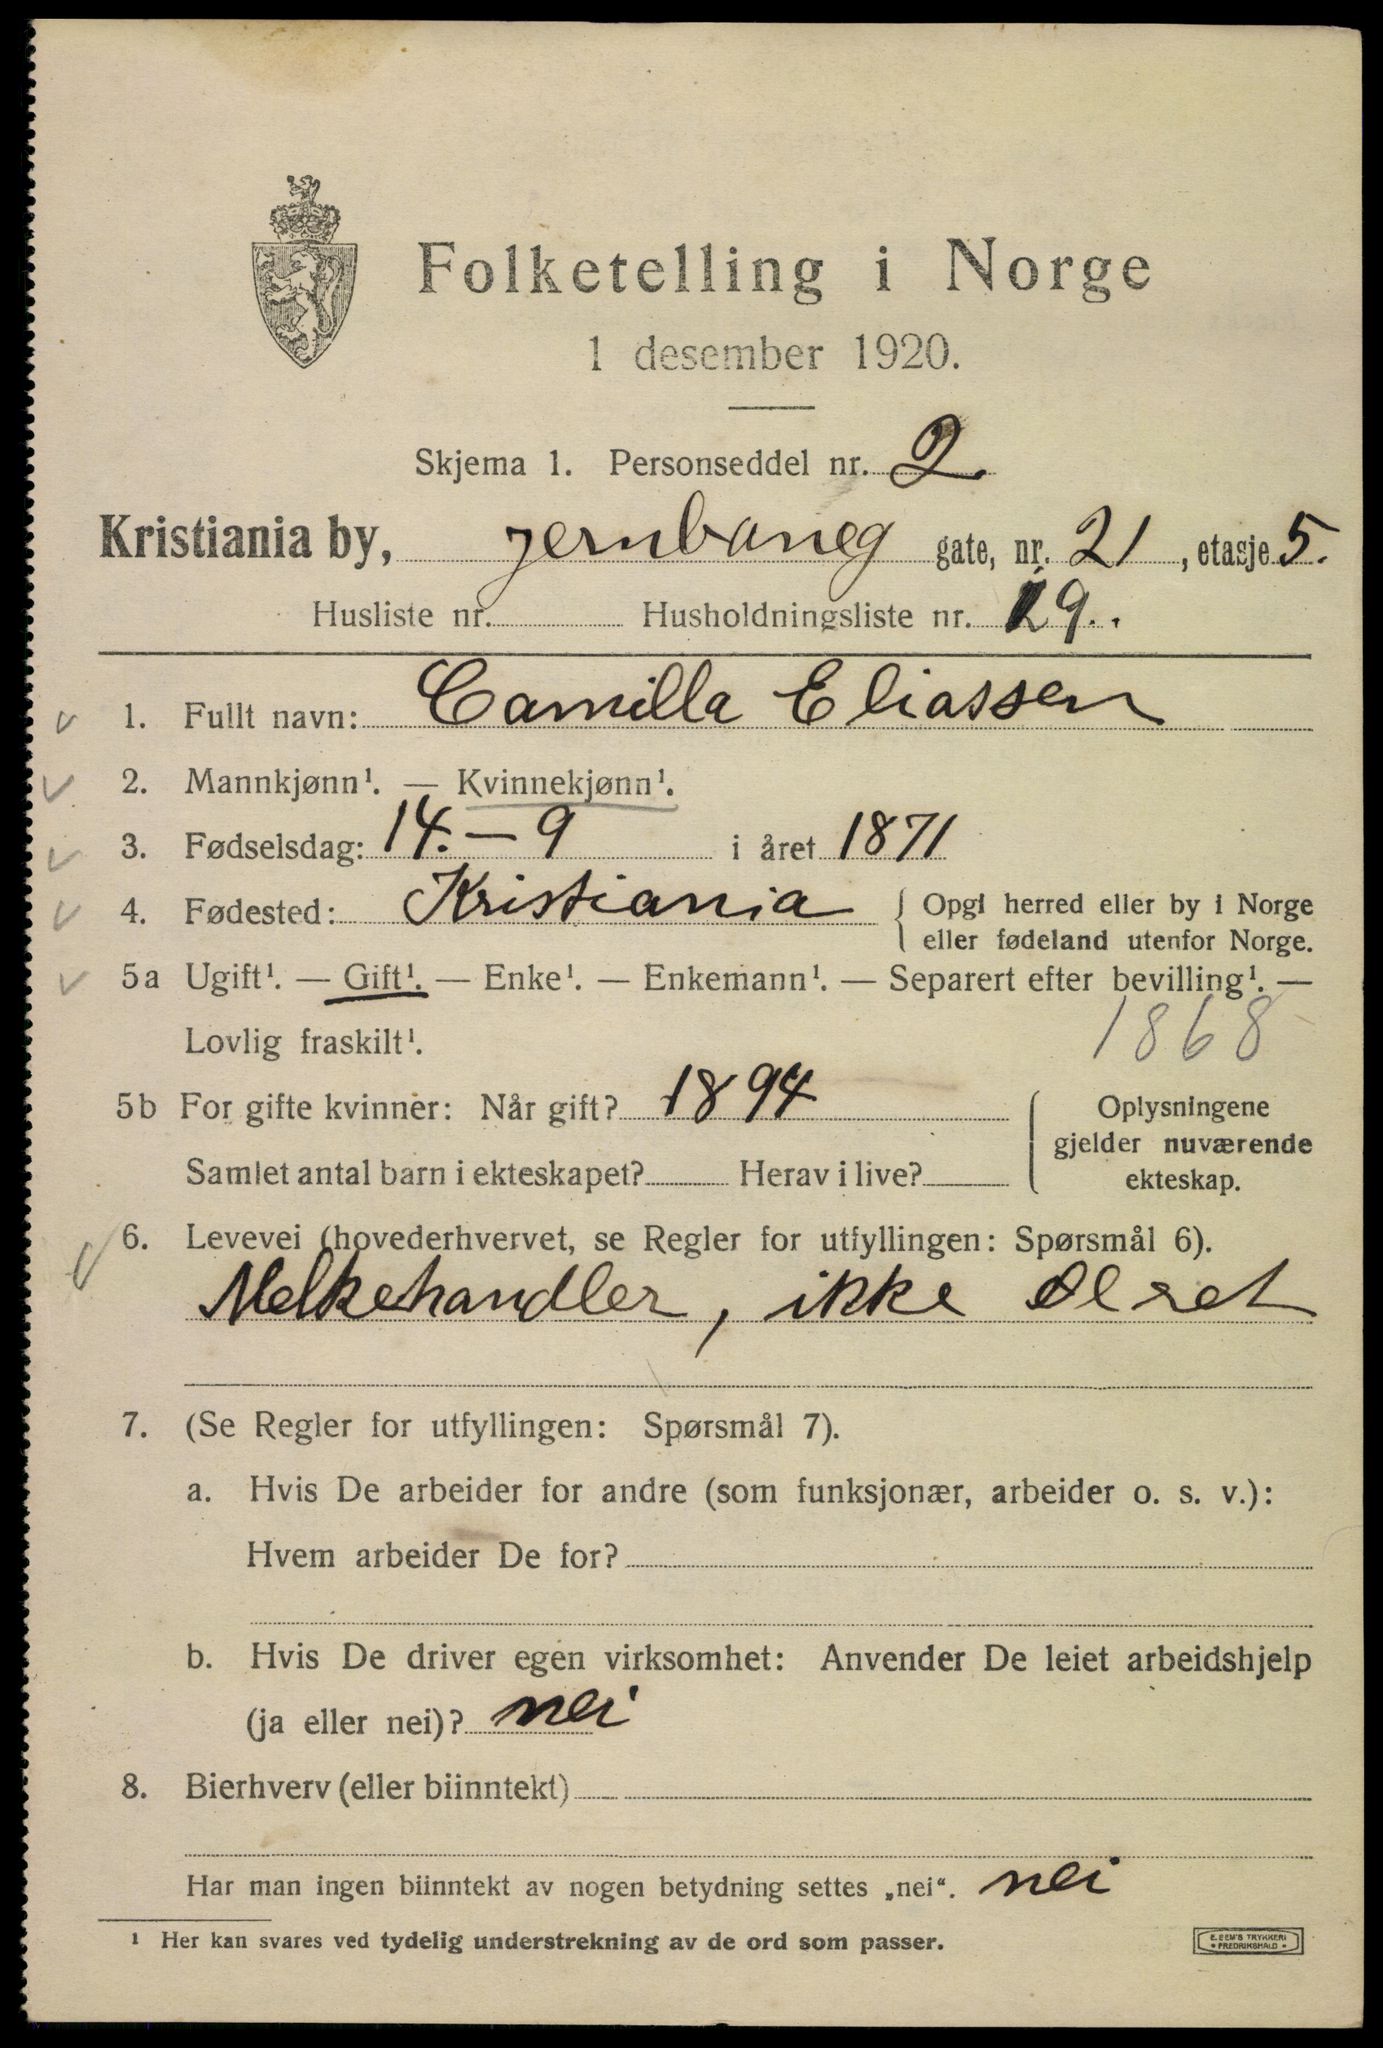 Folketelling i Norge
1 desember 1920.
Skjema 1. Personseddel nr. 2
Kristiania by, Jernbaneg gate, nr. 21, etasje 5.
Husliste nr. Husholdningsliste nr. 29.
1. Fullt navn: Camilla Eliassen
2. Mannkjønn¹. — Kvinnekjønn¹.
3. Fødselsdag: 14. – 9 i året 1871
4. Fødested: Kristiania { Opgi herred eller by i Norge
eller fødeland utenfor Norge.
5a Ugift¹. — Gift¹. — Enke¹. — Enkemann¹. — Separert efter bevilling¹. —
Lovlig fraskilt¹. 1868
5b For gifte kvinner: Når gift? 1894 Oplysningene
gjelder nuværende
Samlet antal barn i ekteskapet? Herav i live? ekteskap.
6. Levevei (hovederhvervet, se Regler for utfyllingen: Spørsmål 6).
Melkehandler, ikke Ølret
7. (Se Regler for utfyllingen: Spørsmål 7).
a. Hvis De arbeider for andre (som funksjonær, arbeider o. s. v.):
Hvem arbeider De for?
b. Hvis De driver egen virksomhet: Anvender De leiet arbeidshjelp
(ja eller nei)? nei
8. Bierhverv (eller biinntekt)
Har man ingen biinntekt av nogen betydning settes „nei“. nei
¹ Her kan svares ved tydelig understrekning av de ord som passer.
E. SEM'S TRYKKERI
• FREDRIKSHALD •